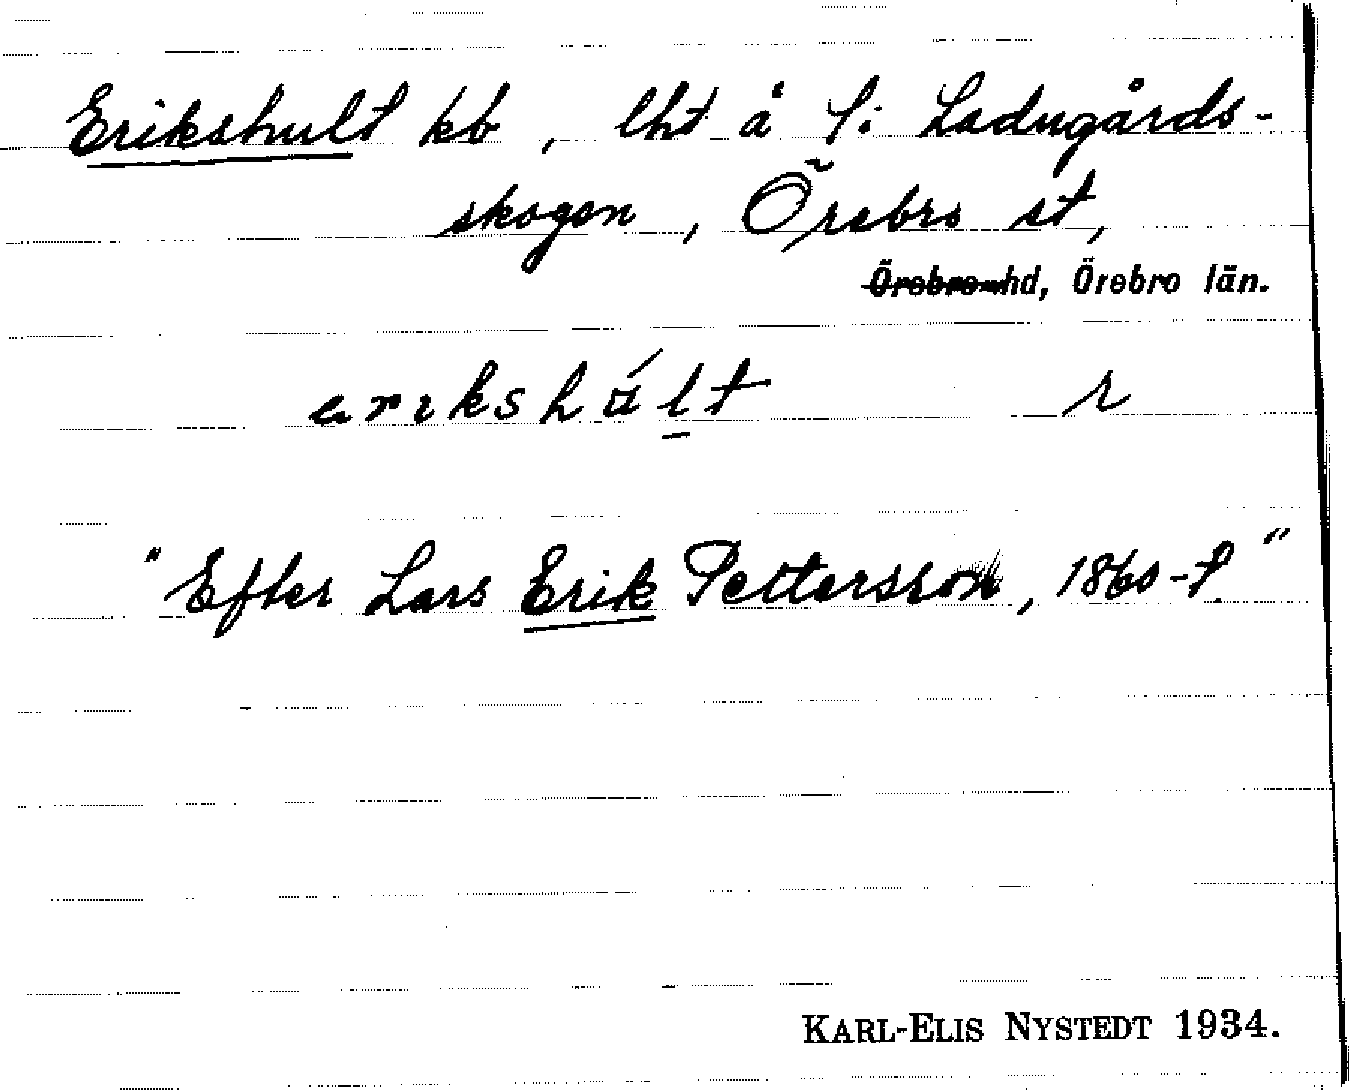 Erikshult kb, lht å f. Ladugårds-
skogen, Örebro st,
Örebro hd, Örebro län.
erikshúlt r
"Efter Lars Erik Pettersson, 1860-t."
KARL-ELIS NYSTEDT 1934.